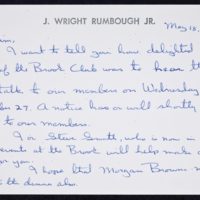 J. WRIGHT RUMBOUGH JR.
May 18,
I want to tell you how delighted
of the Brook Club was to hear th
talk to our members on Wednesday
27. A notice has or will shortly
to our members.
I or Steve Smith, who is now in
events at the Brook will help make
for you.
I hope that Morgan Brown
the dinner also.